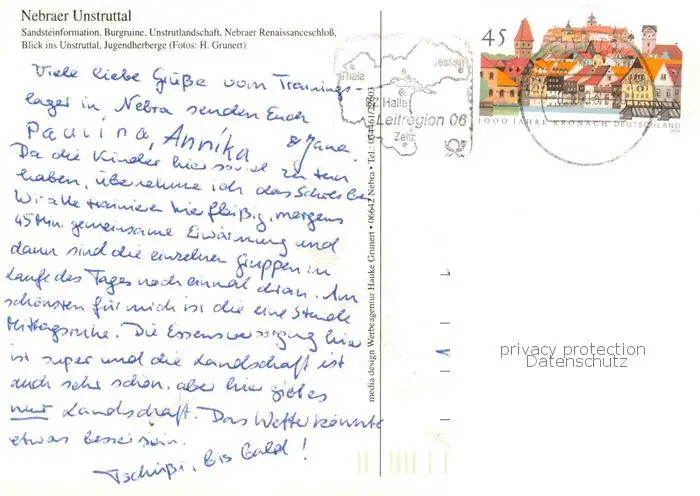 Nebraer Unstruttal
Sandsteinformation, Burgruine, Unstrutlandschaft, Nebraer Renaissanceschloß,
Blick ins Unstruttal, Jugendherberge (Fotos: H. Grunert)
Viele liebe Grüße vom Trainings-
lager in Nebra senden Euch
Paulina, Annika & Jana.
Da die Kinder hier soviel zu tun
haben, übernehme ich das Schreiben.
Wir alle trainieren hier fleißig, morgens
45 Min. gemeinsame Erwärmung und
dann sind die einzelnen Gruppen im
Laufe des Tages noch einmal dran. Am
schönsten für mich ist die eine Stunde
Mittagsruhe. Die Essensversorgung hier
ist super und die Landschaft ist
auch sehr schön, aber hier gibt es
nur Landschaft. Das Wetter könnte
etwas besser sein.
Tschüßi, bis bald!
media design Werbeagentur Hauke Grunert • 06642 Nebra • Tel.:
Thale
Jessen
BZ Halle
Leitregion 06
Zeitz
45
1000 JAHRE KRONACH DEUTSCHLAND
privacy protection
Datenschutz